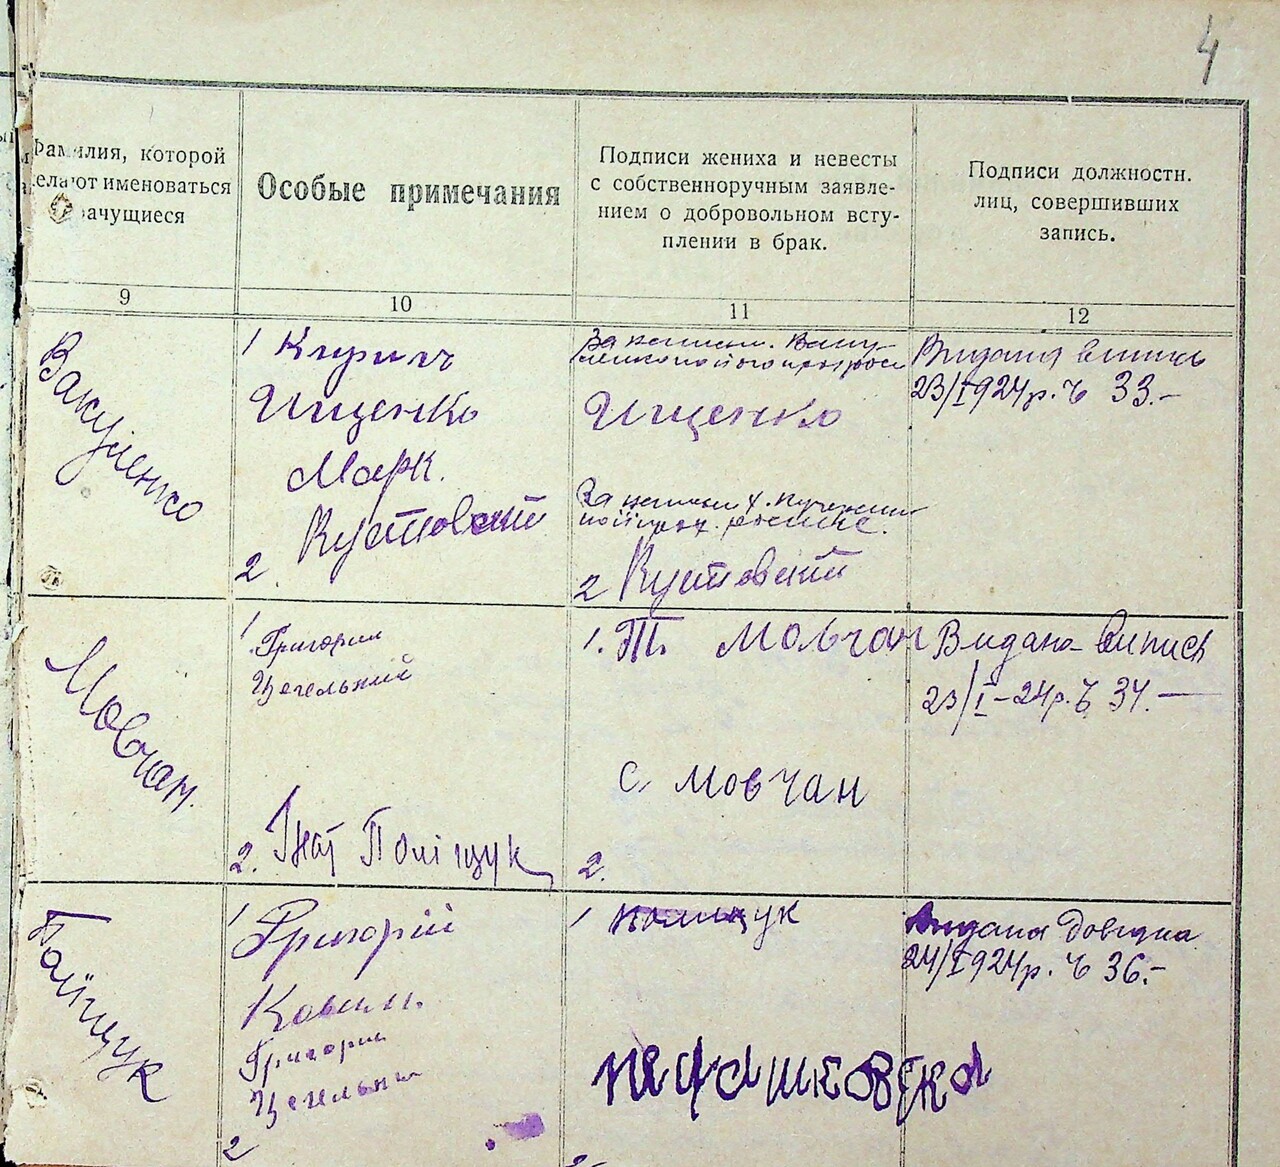 4
Фамилия, которой
желают именоваться
брачущиеся
Особые примечания
Подписи жениха и невесты
с собственноручным заявле-
нием о добровольном всту-
плении в брак.
Подписи должностн.
лиц, совершивших
запись.
9
10
11
12
Вакуленко
1 Кирило
Ищенко
Марк.
2. Кустовський
За неписьм. Ваку-
ленко по його
Ищенко
За неписьм.
2 Кустовський
Видана випись
23/I 1924 р. Ч 33.-
Мовчан.
1. Григорий
Цегельний
2. Ігнат Поліщук
1. Т. Мовчан
С. Мовчан
2.
Видано випись
23/I-24 р. Ч 34.—
1 Григорій
Григорий
Цегельни
2
1 Полищук
Видана довідка
24/I 1924 р. Ч 36.-